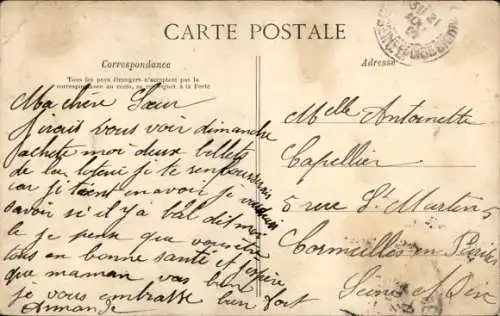 CARTE POSTALE
Correspondance
Tous les pays étrangers n'acceptent pas la
correspondance au recto, se renseigner à la Poste
Adresse
Ma chère Sœur
j'irait vous voir dimanche
achete moi deux billets
de la loterie je te rembourserais
car je tient en avoir je voudrais
savoir si il y a bal dit moi
le je peux que vous être
tous en bonne santé et j'espère
que maman vas bien
je vous embrasse bien fort
Armande
Melle Antoinette
Capellier
5 rue St Martin 5
Cormeilles en Parisis
Seine et Oise